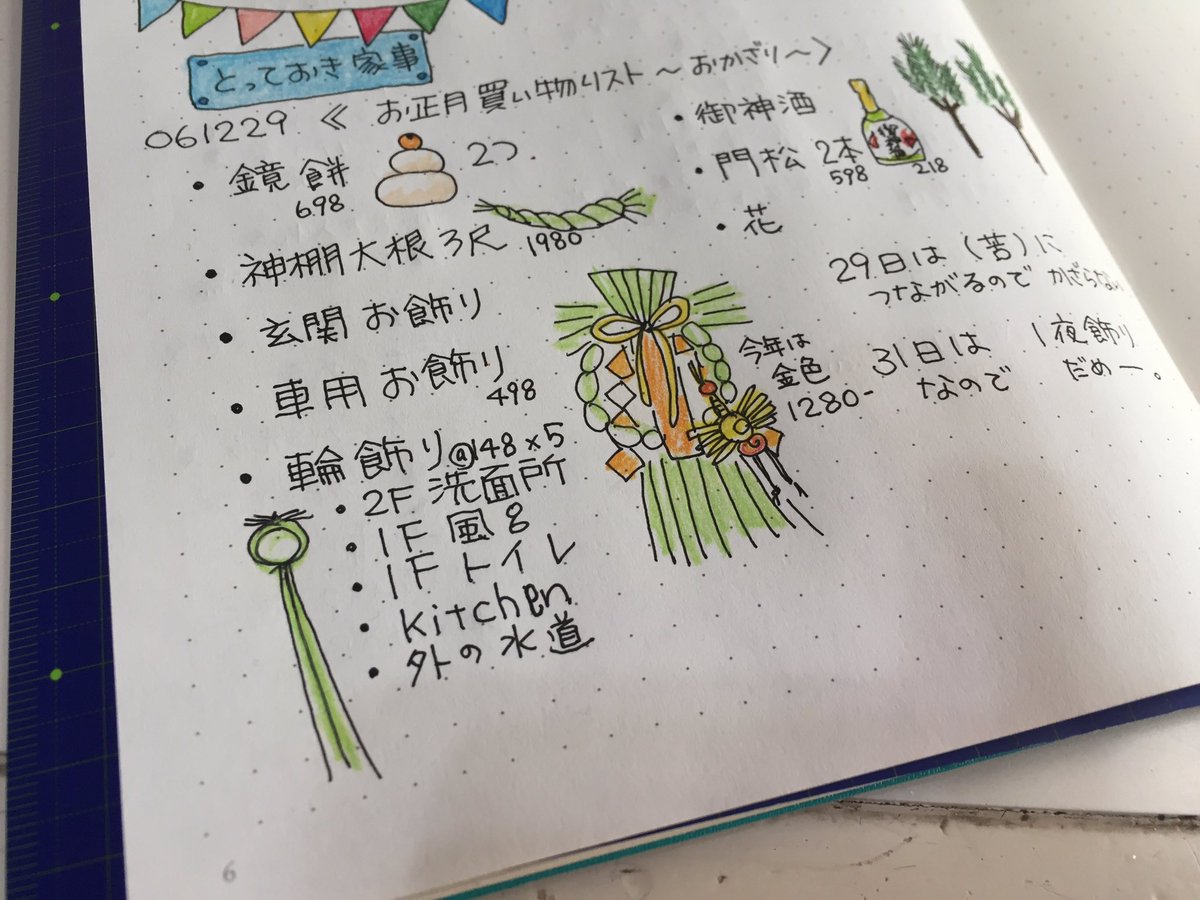 とっておき家事
061229 《 お正月買い物リスト〜おかざり〜》
・鏡餅 2つ
698
・神棚大根3尺 1980
・玄関お飾り
・車用お飾り
498
・輪飾り@148×5
・2F 洗面所
・1F 風呂
・1F トイレ
・kitchen
・外の水道
・御神酒
・門松 2本
598 218
・花
29日は(苦)に
つながるのでかざらない
今年は
金色
1280-
31日は 1夜飾り
なので だめー。
6